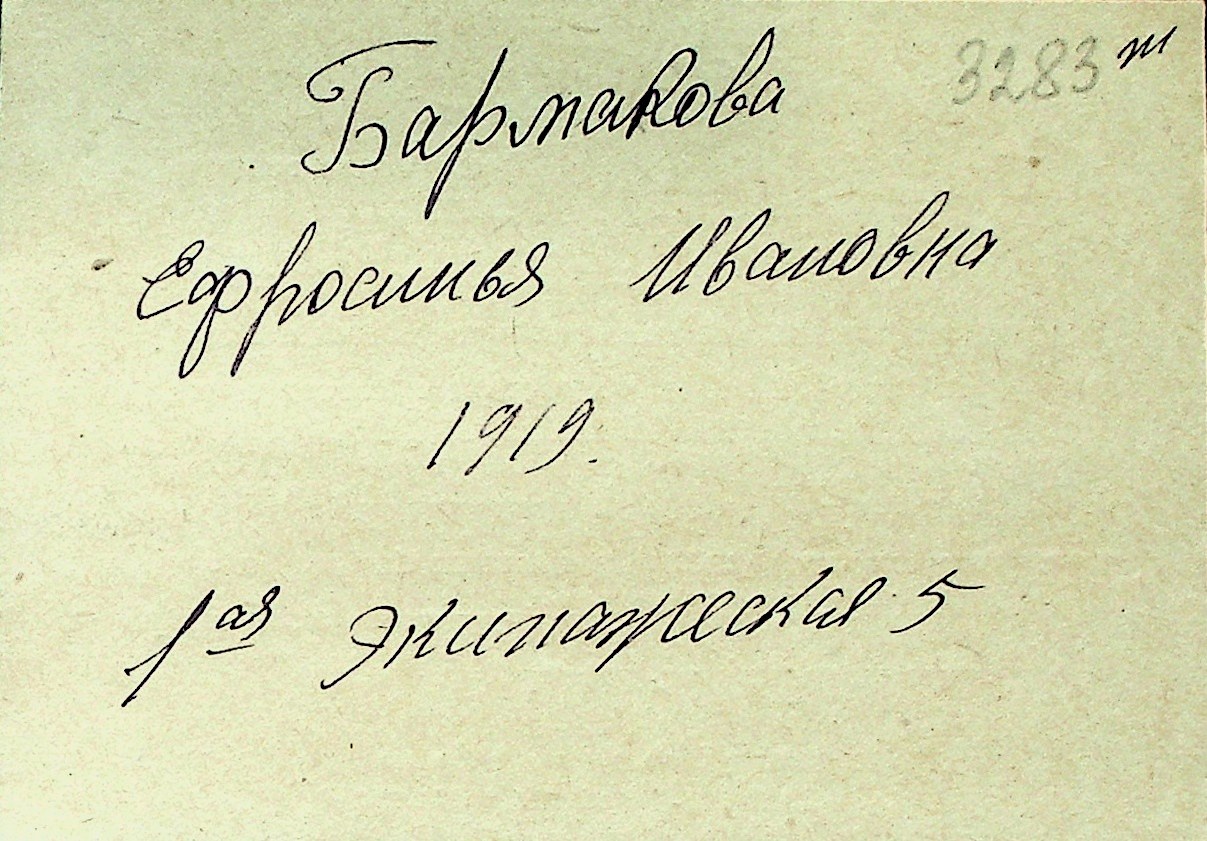 3283 т
Бармакова
Ефросинья Ивановна
1919.
1ая Экипажеская 5